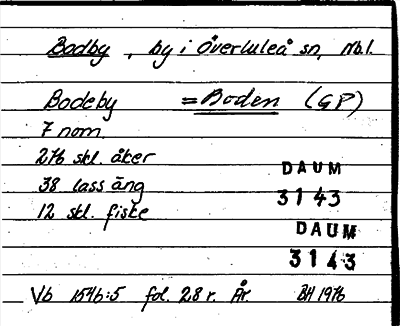 Bodby, by i Överluleå sn, Nbl.
Bodeby = Boden (GP)
7 nom.
276 skl. åker
38 lass äng
12 skl. fiske
DAUM
3143
DAUM
3143
Vb 1546:5 fol. 28 r. År. BH 1976